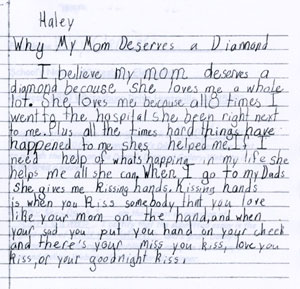 Haley
Why My Mom Deserves a Diamond
I beilieve my mom deserves a
diamond because she loves me a whole
lot. She loves me because all 8 times I
went to the hospital she been right next
to me. Plus all the times hard things have
happened to me shes helped me. If I
need help of whats happing in my life she
helps me all she can. When I go to my Dads
she gives me kissing hands. Kissing hands
is when you kiss somebody that you love
like your mom on the hand, and when
your sad you put you hand on your cheek
and there's your miss you kiss, love you
kiss, or your goodnight kiss.